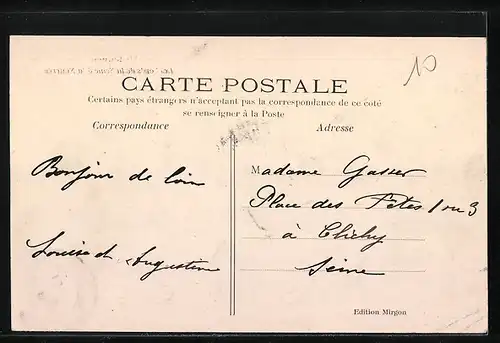 10
CARTE POSTALE
Certains pays étrangers n'acceptent pas la correspondance de ce côté
se renseigner à la Poste
Correspondance
Adresse
Bonjour de loin
Louise et Augustine
Madame Gasser
Place des Fêtes 1 ou 3
à Clichy
Seine
Edition Mirgon